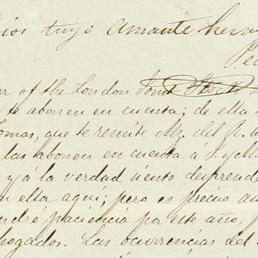 ios tuyo amante her
Pe
er of the London
te abonen en cuenta; de ella
omas, que te remite Mr. del R.
las abonen en cuenta á J. y M.
y á la verdad siento desprende
en ella aquí; pero es preciso
er paciencia por este año,
hogados. Las ocurrencias del